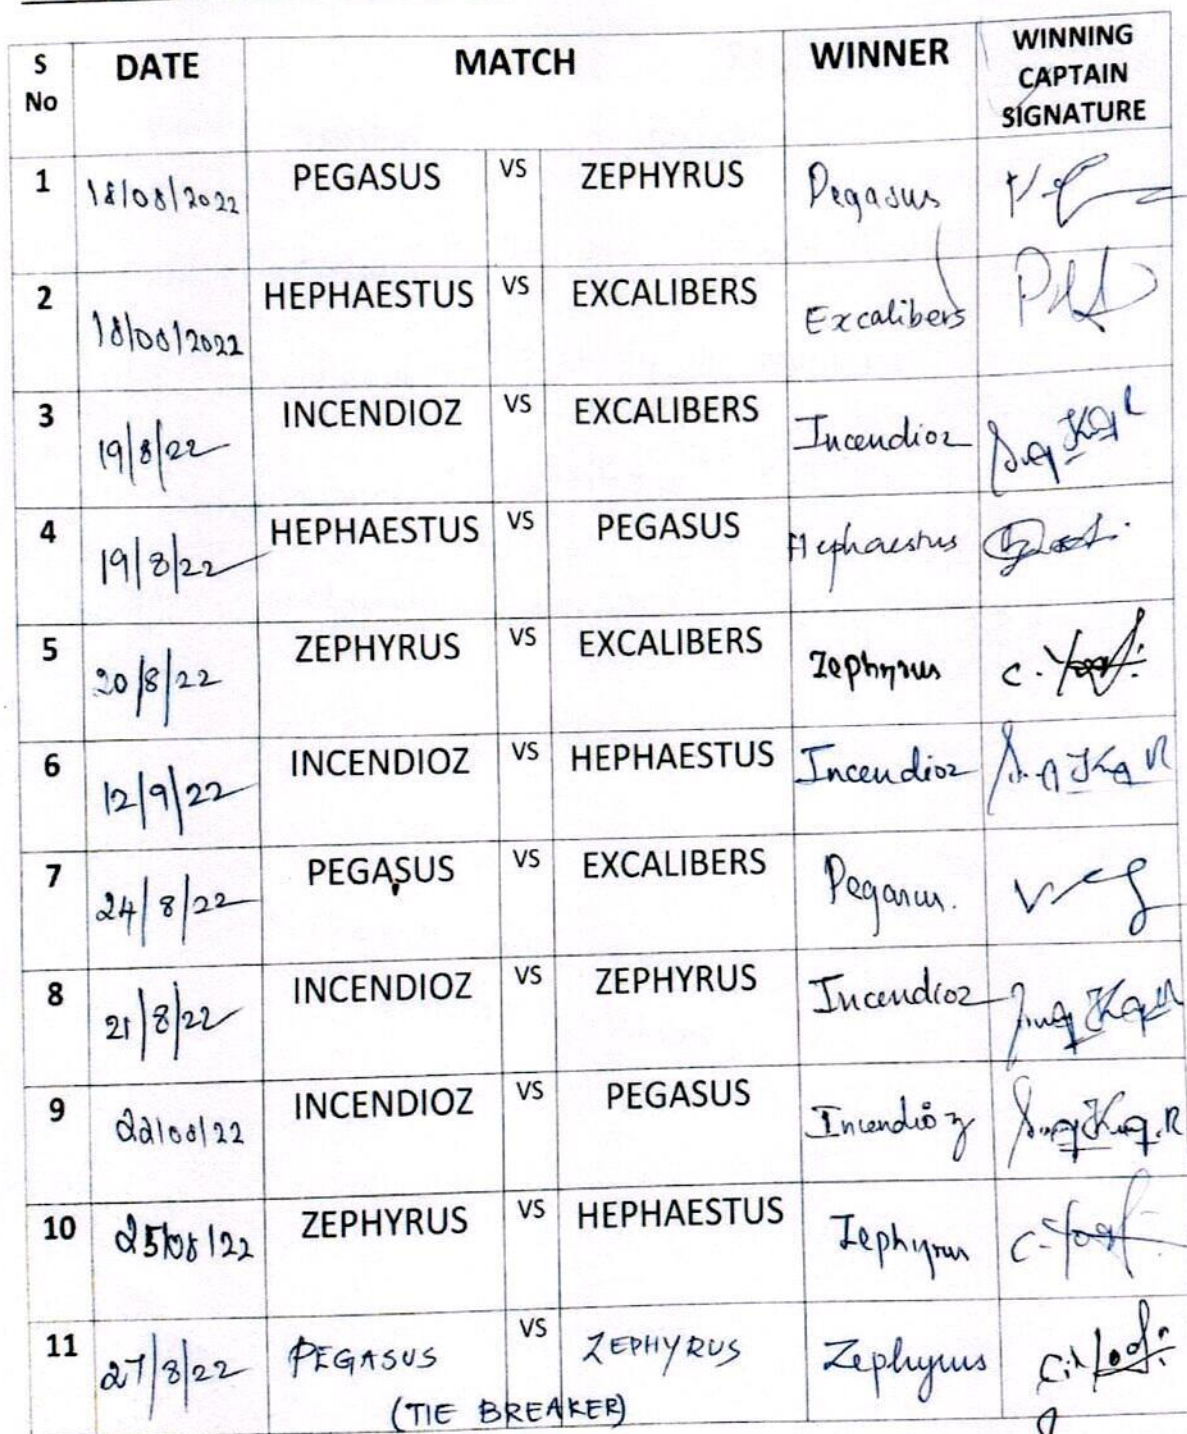 S No DATE MATCH WINNER WINNING CAPTAIN SIGNATURE
1 18/08/2022 PEGASUS VS ZEPHYRUS Pegasus
2 18/08/2022 HEPHAESTUS VS EXCALIBERS Excalibers
3 19/8/22 INCENDIOZ VS EXCALIBERS Incendioz
4 19/8/22 HEPHAESTUS VS PEGASUS Hephaestus
5 20/8/22 ZEPHYRUS VS EXCALIBERS Zephyrus
6 12/9/22 INCENDIOZ VS HEPHAESTUS Incendioz
7 24/8/22 PEGASUS VS EXCALIBERS Pegasus.
8 21/8/22 INCENDIOZ VS ZEPHYRUS Incendioz
9 22/08/22 INCENDIOZ VS PEGASUS Incendioz
10 25/08/22 ZEPHYRUS VS HEPHAESTUS Zephyrus
11 27/8/22 PEGASUS VS ZEPHYRUS Zephyrus
(TIE BREAKER)